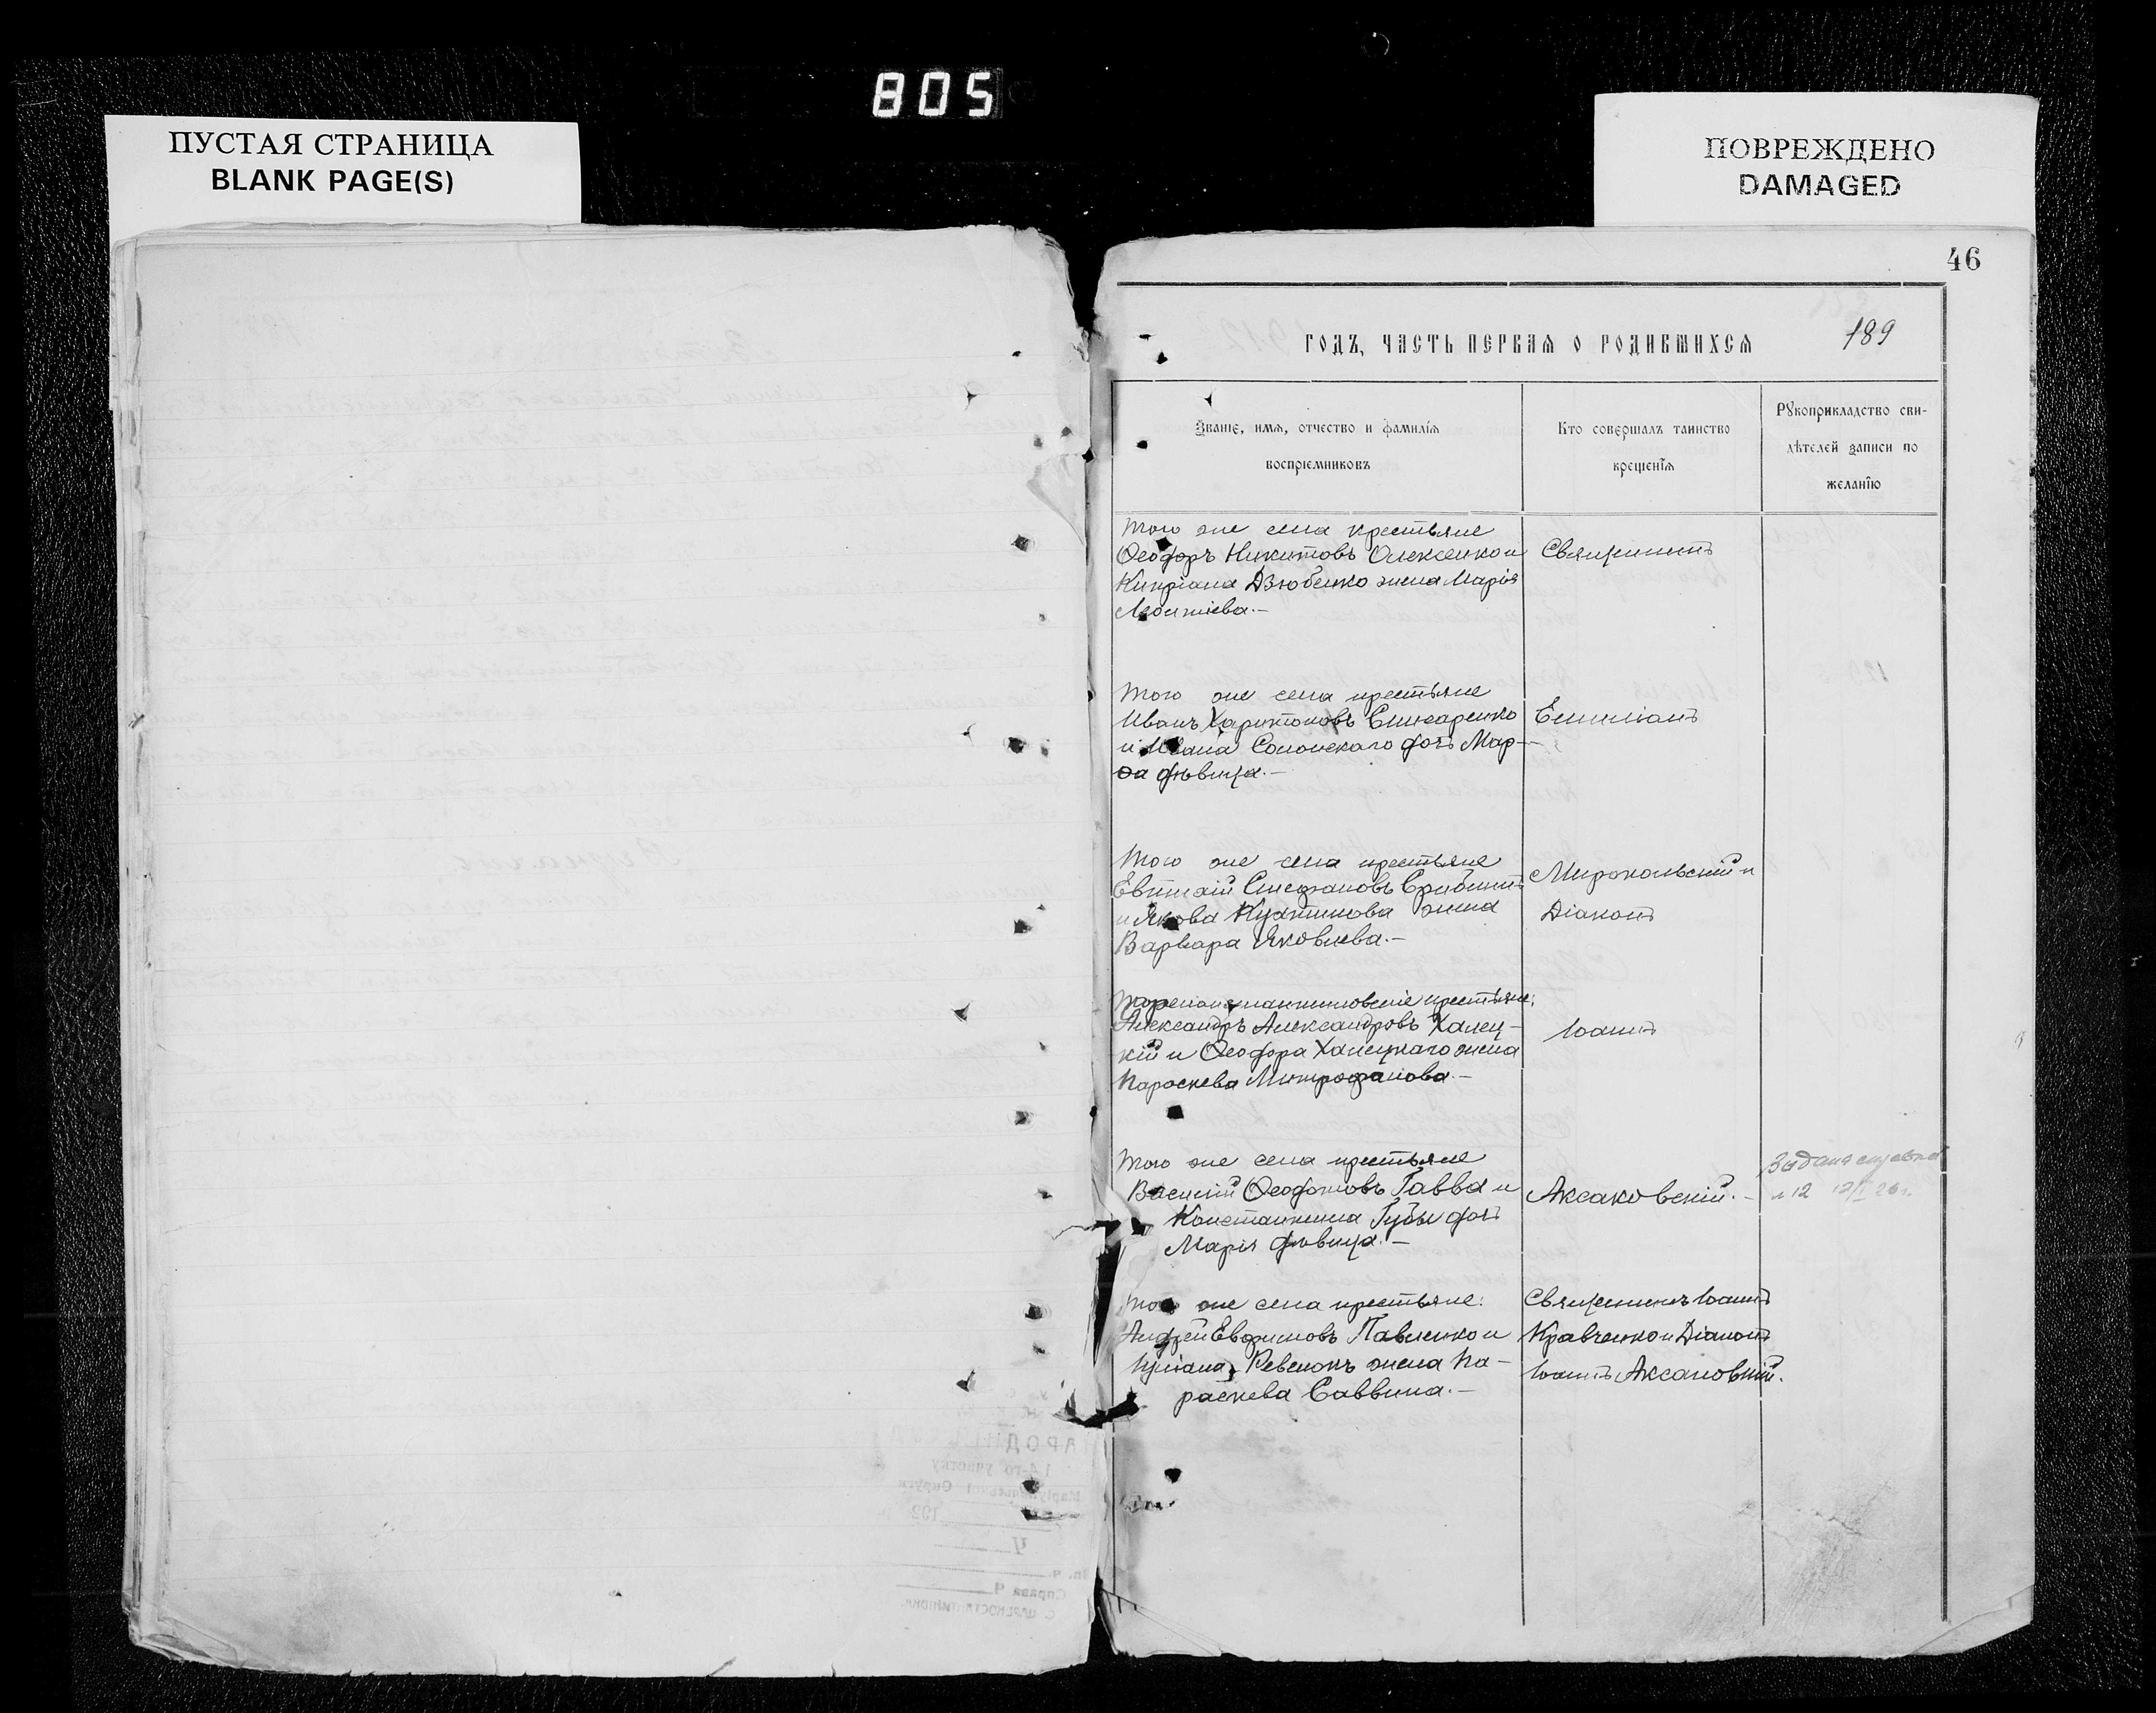 805
ПУСТАЯ СТРАНИЦА
BLANK PAGE(S)
ПОВРЕЖДЕНО
DAMAGED
46
ГОДЪ, ЧАСТЬ ПЕРВАЯ О РОДИВШИХСЯ
189
Званіе, имя, отчество и фамилія
воспріемниковъ
Кто совершалъ таинство
крещенія
Рукоприкладство сви-
дѣтелей записи по
желанію
того же села крестьяне
Ѳеодоръ Никитовъ Олексенко и
Кипріана Дзюбенко жена Марія
Леонтіева.—
Священникъ
того же села крестьяне
Иванъ Харитоновъ Слюсаренко
и Іоана Солонскаго дочь Мар-
ѳа дѣвица.—
Емиліанъ
того же села крестьяне
Евтихій Стефановъ Срибный
и Якова Кухтинова жена
Варвара Яковлева.—
Миропольскій и
Діаконъ
крестьяне:
Александръ Александровъ Халец-
кій и Ѳеодора Халецкаго жена
Параскева Митрофанова.—
Іоаннъ
того же села крестьяне
Василій Ѳеодотовъ Гавва и
Константина Губы дочь
Марія дѣвица.—
Аксаковскій.—
Выдана справка
№ 12 12/I 26 г.
того же села крестьяне:
Андрей Евфимовъ Павленко и
Іуліана Ревенокъ жена Па-
раскева Саввина.—
Священникъ Іоаннъ
Кравченко и Діаконъ
Іоаннъ Аксаковскій.